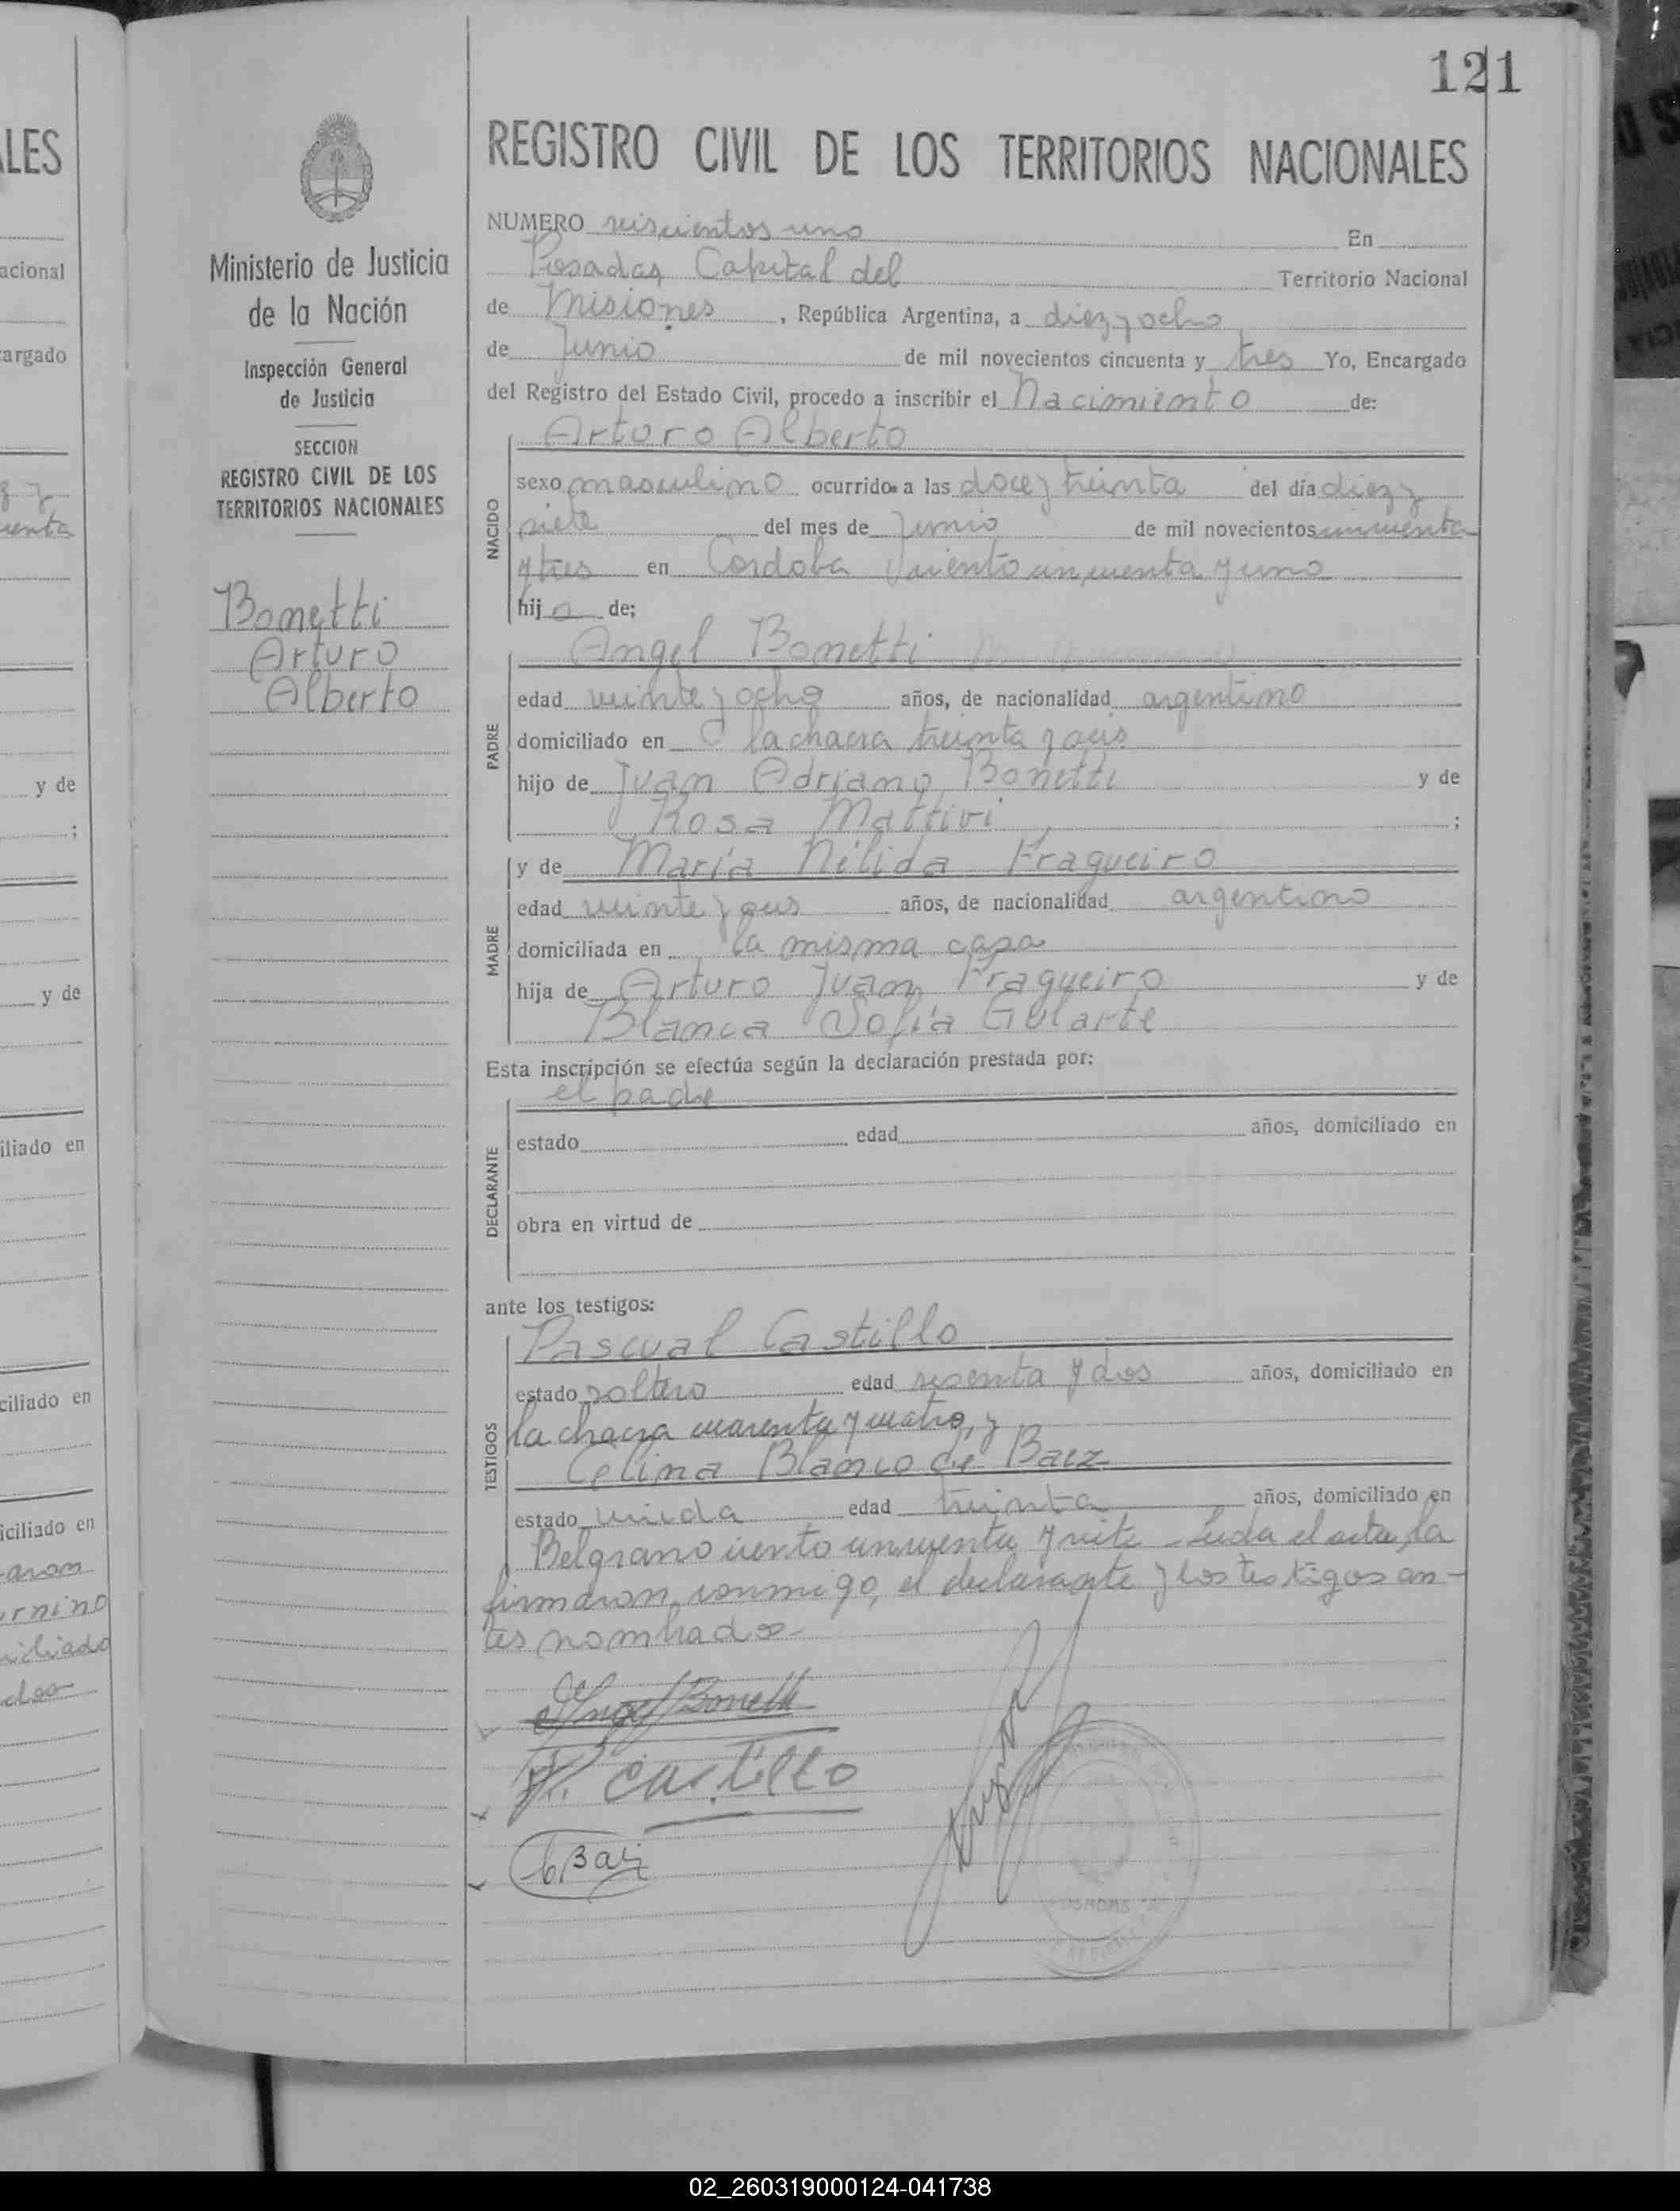 121
REGISTRO CIVIL DE LOS TERRITORIOS NACIONALES
Ministerio de Justicia
de la Nación
Inspección General
de Justicia
SECCION
REGISTRO CIVIL DE LOS
TERRITORIOS NACIONALES
Bonetti
Arturo
Alberto
NUMERO seiscientos uno En
Posadas, Capital del Territorio Nacional
de Misiones, República Argentina, a diez y ocho
de Junio de mil novecientos cincuenta y tres Yo, Encargado
del Registro del Estado Civil, procedo a inscribir el Nacimiento de:
Arturo Alberto
NACIDO
sexo masculino ocurrido a las doce y treinta del día diez y
siete del mes de Junio de mil novecientos cincuenta
y tres en Cordoba ciento cincuenta y uno
hijo de;
PADRE
Angel Bonetti
edad veinte y ocho años, de nacionalidad argentino
domiciliado en la chacra treinta y seis
hijo de Juan Adriano Bonetti y de
Rosa Mattivi ;
MADRE
y de María Nélida Fragueiro
edad veinte y seis años, de nacionalidad argentino
domiciliada en la misma casa
hija de Arturo Juan Fragueiro y de
Blanca Sofía Gularte
Esta inscripción se efectúa según la declaración prestada por:
el padre
DECLARANTE
estado edad años, domiciliado en
obra en virtud de
ante los testigos:
TESTIGOS
Pascual Castillo
estado soltero edad sesenta y dos años, domiciliado en
la chacra cuarenta y cuatro, y
Celina Blanco de Baez
estado viuda edad treinta años, domiciliado en
Belgrano ciento cincuenta y siete - Leida el acta, la
firmaron conmigo, el declarante y los testigos an-
tes nombrados-
Angel Bonetti
P. Castillo
C B Baez
POSADAS
LES
acional
argado
y de
;
y de
iliado en
ciliado en
iciliado en
aron
rnino
iciliado
dos
02_260319000124-041738